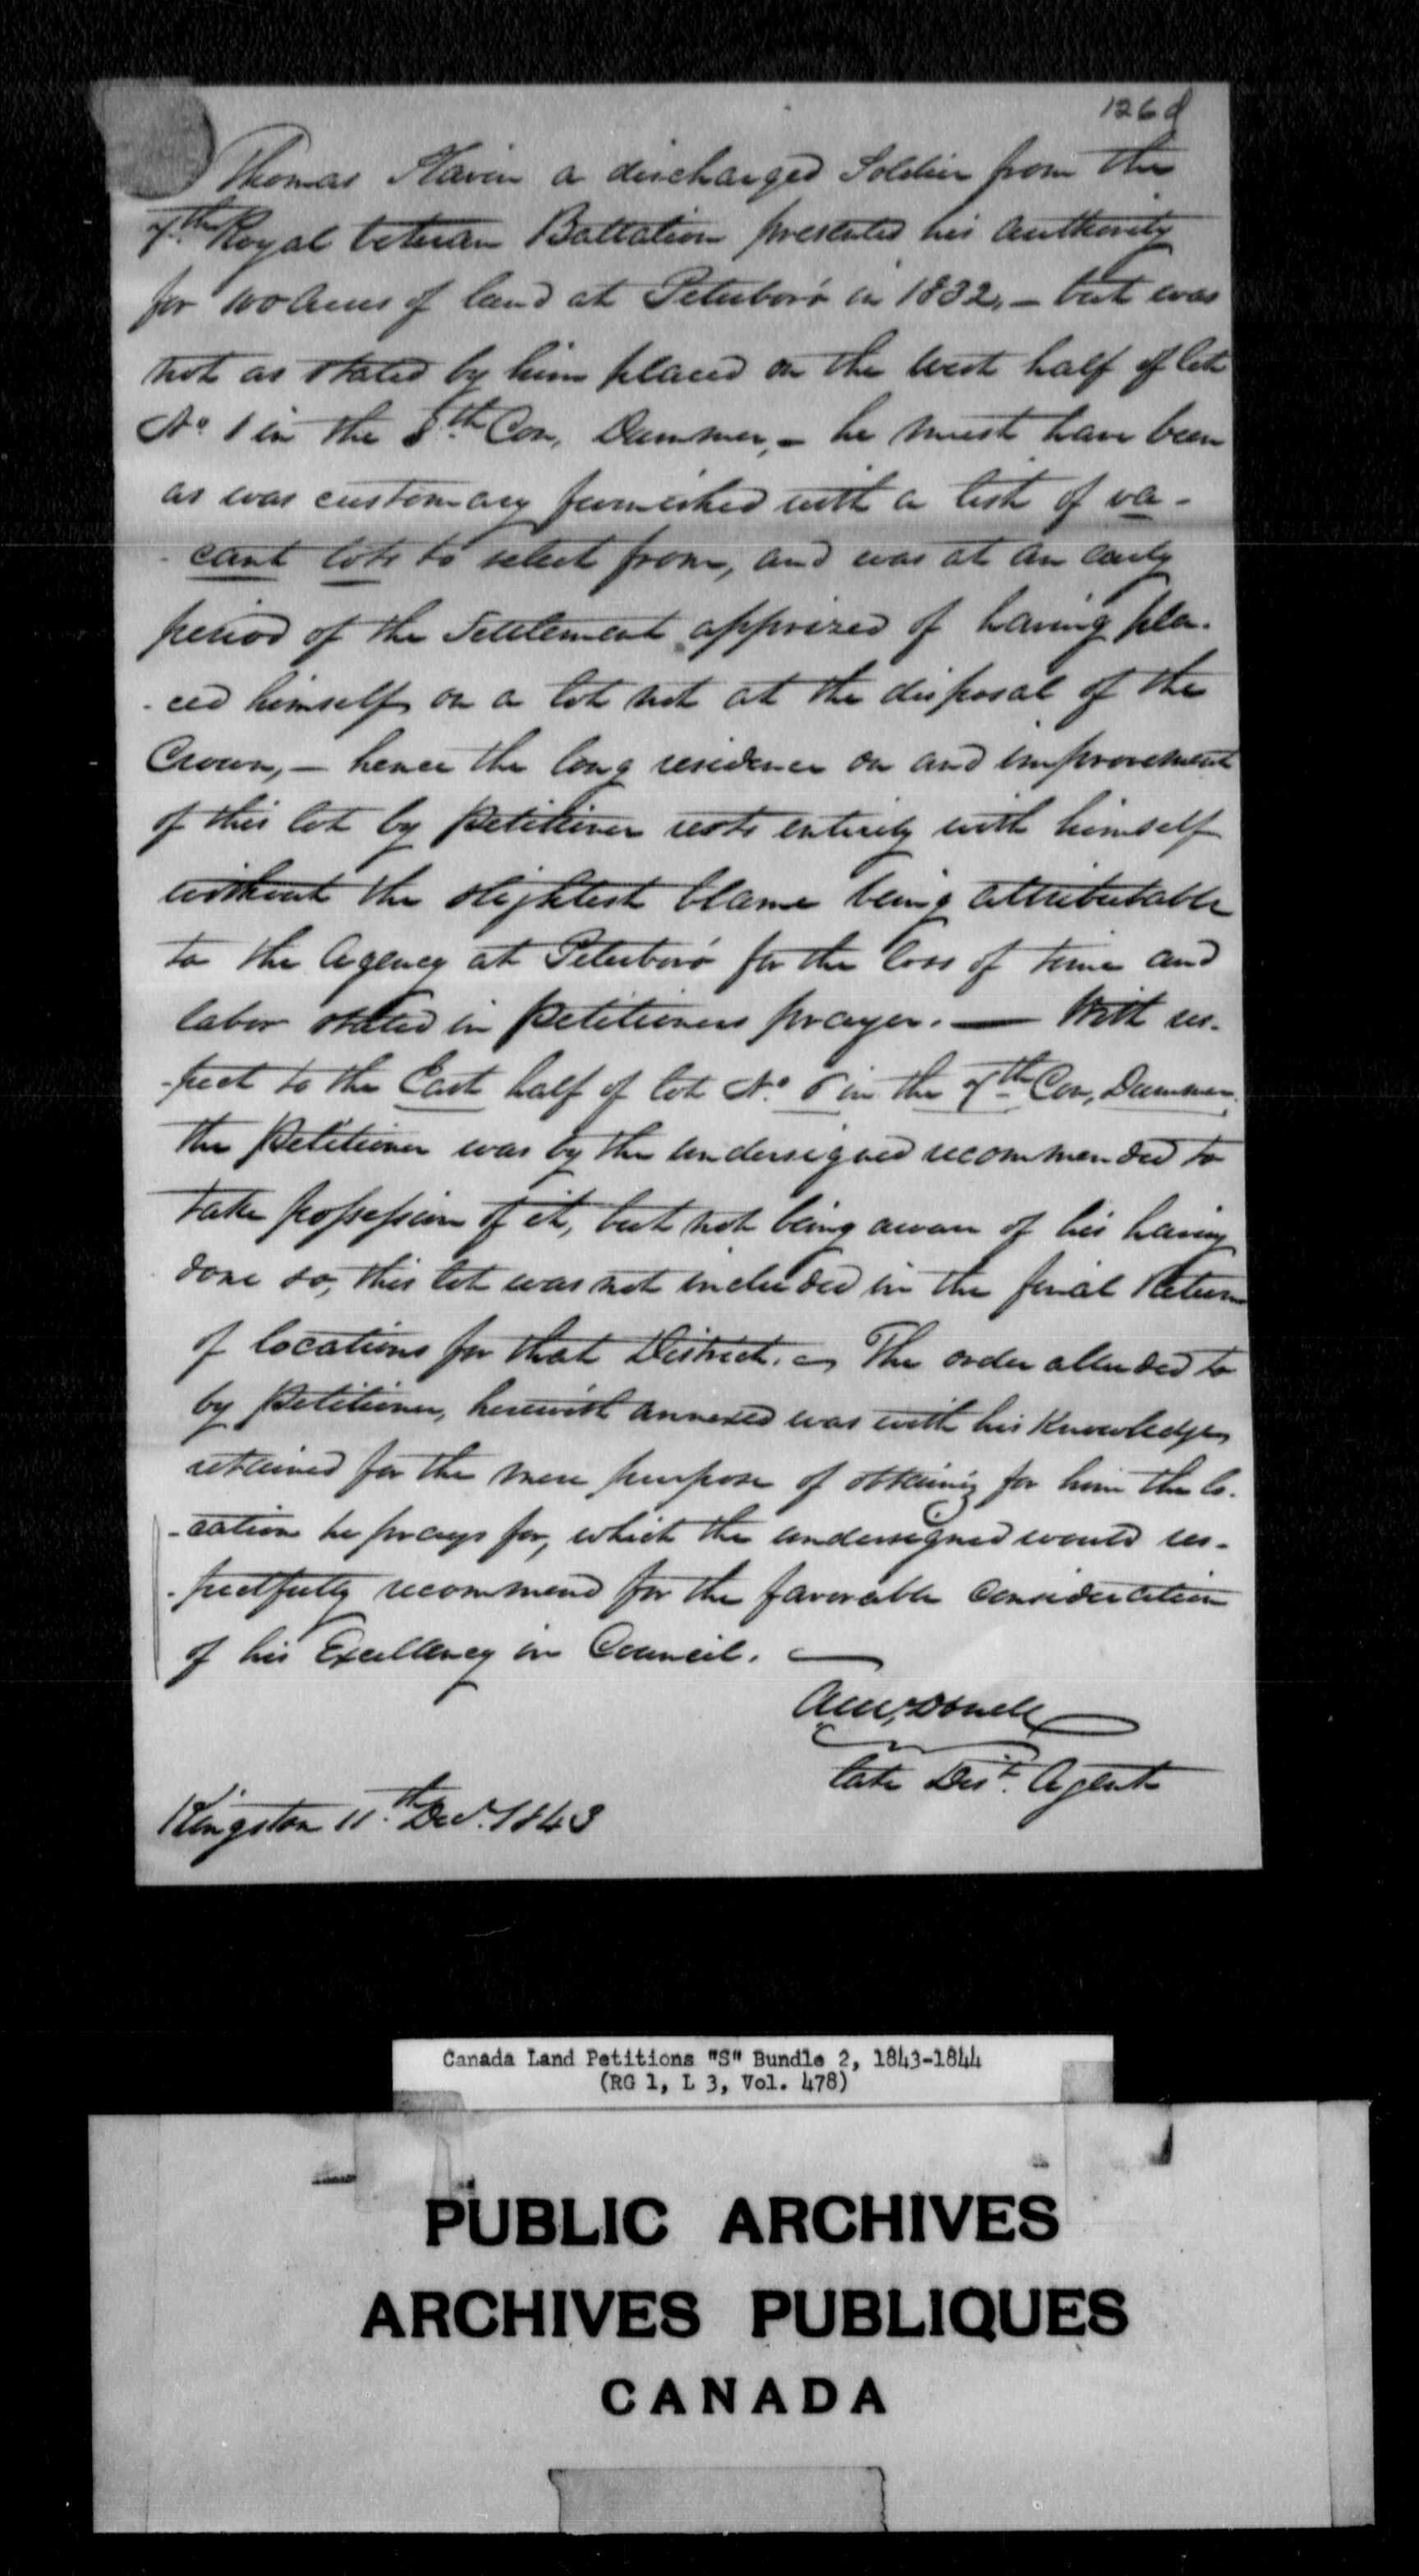 126d
Thomas Slavin a discharged Soldier from the
7th Royal veteran Battalion presented his authority
for 100 Acres of land at Peterboro in 1832, – but was
not as stated by him placed on the west half of lot
No. 1 in the 8th Con, Dummer, – he must have been
as was customary furnished with a list of va-
-cant lots to select from, and was at an early
period of the Settlement apprized of having pla-
-ced himself on a lot not at the disposal of the
Crown, – hence the long residence on and improvement
of this lot by petitioner rests entirely with himself
without the slightest blame being attributable
to the Agency at Peterboro for the loss of time and
labor stated in petitioners prayer. — With res-
-pect to the East half of lot No. in the 7th Con, Dummer,
the petitioner was by the undersigned recommended to
take possession of it, but not being aware of his having
done so, this lot was not included in the final Return
of locations for that District. – The order alluded to
by petitioner, herewith annexed was with his Knowledge
retained for the mere purpose of obtaining for him the lo-
-cation he prays for, which the undersigned would res-
-pectfully recommend for the favorable Consideration
of his Excellency in Council. —
A McDonell
late Dist. Agent
Kingston 11th Decr. 1843
Canada Land Petitions "S" Bundle 2, 1843-1844
(RG 1, L 3, Vol. 478)
PUBLIC ARCHIVES
ARCHIVES PUBLIQUES
CANADA